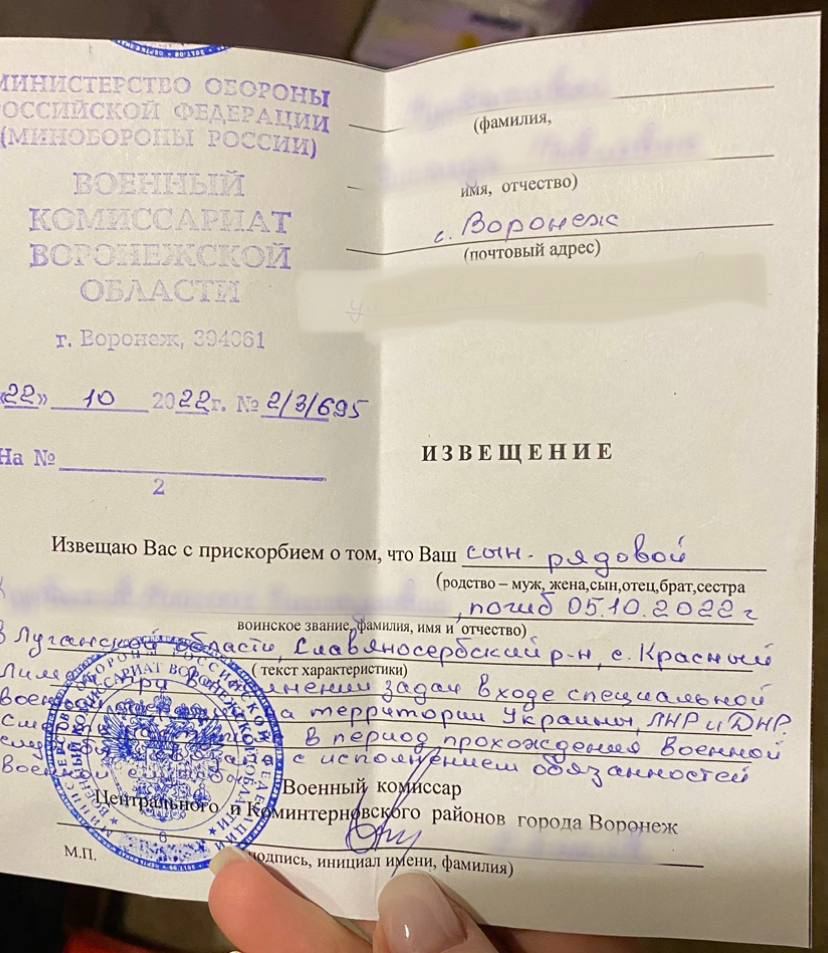 МИНИСТЕРСТВО ОБОРОНЫ
РОССИЙСКОЙ ФЕДЕРАЦИИ
(МИНОБОРОНЫ РОССИИ)
ВОЕННЫЙ
КОМИССАРИАТ
ВОРОНЕЖСКОЙ
ОБЛАСТИ
г. Воронеж, 394061
«22» 10 2022г. № 2/3/695
На №
2
(фамилия,
имя, отчество)
г. Воронеж
(почтовый адрес)
ИЗВЕЩЕНИЕ
Извещаю Вас с прискорбием о том, что Ваш сын - рядовой
(родство – муж, жена,сын,отец,брат,сестра
, погиб 05.10.2022 г
воинское звание, фамилия, имя и отчество)
в Луганской области, Славяносербский р-н, с. Красный
( текст характеристики)
Лима при нении задач входе специальной
военной а территории Украины, ЛНР и ДНР.
в период прохождения военной
с исполнением обязанностей
военной службы
Военный комиссар
Центрального и Коминтерновского районов города Воронеж
М.П.
подпись, инициал имени, фамилия)